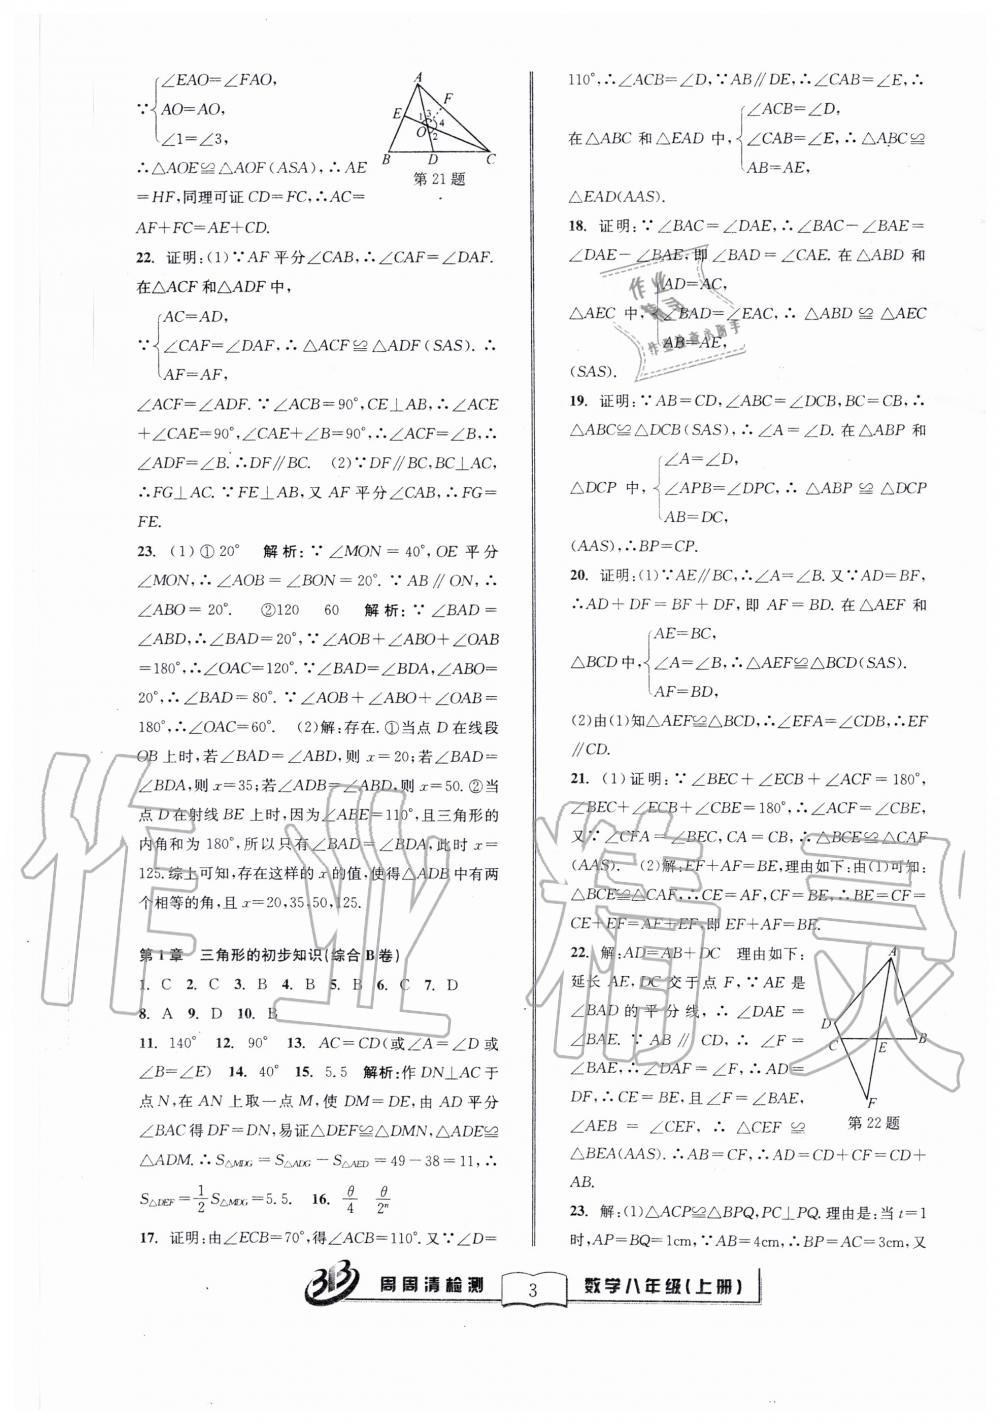 ∠EAO=∠FAO,
∵ AO=AO,
∠1=∠3,
∴△AOE≌△AOF(ASA),∴AE
=HF,同理可证CD=FC,∴AC=
AF+FC=AE+CD.
A
F
E
1 3
O 4
2
B D C
第21题
22. 证明:(1)∵AF平分∠CAB,∴∠CAF=∠DAF.
在△ACF和△ADF中,
AC=AD,
∵ ∠CAF=∠DAF,∴△ACF≌△ADF(SAS).∴
AF=AF,
∠ACF=∠ADF.∵∠ACB=90°,CE⊥AB,∴∠ACE
+∠CAE=90°,∠CAE+∠B=90°,∴∠ACF=∠B,∴
∠ADF=∠B.∴DF∥BC. (2)∵DF∥BC,BC⊥AC,
∴FG⊥AC.∵FE⊥AB,又AF平分∠CAB,∴FG=
FE.
23. (1)①20° 解析:∵∠MON=40°,OE平分
∠MON,∴∠AOB=∠BON=20°.∵AB∥ON,∴
∠ABO=20°. ②120 60 解析:∵∠BAD=
∠ABD,∴∠BAD=20°,∵∠AOB+∠ABO+∠OAB
=180°,∴∠OAC=120°.∵∠BAD=∠BDA,∠ABO=
20°,∴∠BAD=80°.∵∠AOB+∠ABO+∠OAB=
180°,∴∠OAC=60°. (2)解:存在.①当点D在线段
OB上时,若∠BAD=∠ABD,则x=20;若∠BAD=
∠BDA,则x=35;若∠ADB=∠ABD,则x=50.②当
点D在射线BE上时,因为∠ABE=110°,且三角形的
内角和为180°,所以只有∠BAD=∠BDA,此时x=
125.综上可知,存在这样的x的值,使得△ADB中有两
个相等的角,且x=20,35,50,125.
第1章 三角形的初步知识(综合B卷)
1. C 2. C 3. B 4. B 5. B 6. C 7. D
8. A 9. D 10. B
11. 140° 12. 90° 13. AC=CD(或∠A=∠D或
∠B=∠E) 14. 40° 15. 5.5 解析:作DN⊥AC于
点N,在AN上取一点M,使DM=DE,由AD平分
∠BAC得DF=DN,易证△DEF≌△DMN,△ADE≌
△ADM.∴S△MDG=S△ADG−S△AED=49−38=11,∴
S△DEF=1/2 S△MDG=5.5. 16. θ/4 θ/2ⁿ
17. 证明:由∠ECB=70°,得∠ACB=110°.又∵∠D=
110°,∴∠ACB=∠D,∵AB∥DE,∴∠CAB=∠E,∴
∠ACB=∠D,
在△ABC和△EAD中, ∠CAB=∠E,∴△ABC≌
AB=AE,
△EAD(AAS).
18. 证明:∵∠BAC=∠DAE,∴∠BAC−∠BAE=
∠DAE−∠BAE,即∠BAD=∠CAE.在△ABD和
AD=AC,
△AEC中, ∠BAD=∠EAC,∴△ABD≌△AEC
AB=AE,
(SAS).
19. 证明:∵AB=CD,∠ABC=∠DCB,BC=CB,∴
△ABC≌△DCB(SAS),∴∠A=∠D.在△ABP和
∠A=∠D,
△DCP中, ∠APB=∠DPC,∴△ABP≌△DCP
AB=DC,
(AAS),∴BP=CP.
20. 证明:(1)∵AE∥BC,∴∠A=∠B.又∵AD=BF,
∴AD+DF=BF+DF,即AF=BD.在△AEF和
AE=BC,
△BCD中, ∠A=∠B,∴△AEF≌△BCD(SAS).
AF=BD,
(2)由(1)知△AEF≌△BCD,∴∠EFA=∠CDB,∴EF
∥CD.
21. (1)证明:∵∠BEC+∠ECB+∠ACF=180°,
∠BEC+∠ECB+∠CBE=180°,∴∠ACF=∠CBE,
又∵∠CFA=∠BEC,CA=CB,∴△BCE≌△CAF
(AAS). (2)解:EF+AF=BE,理由如下:由(1)可知:
△BCE≌△CAF,∴CE=AF,CF=BE,∴BE=CF=
CE+EF=AF+EF,即EF+AF=BE.
22. 解:AD=AB+DC 理由如下:
延长AE,DC交于点F,∵AE是
∠BAD的平分线,∴∠DAE=
∠BAE.∵AB∥CD,∴∠F=
∠BAE,∴∠DAF=∠F,∴AD=
DF,∵CE=BE,且∠F=∠BAE,
∠AEB=∠CEF,∴△CEF≌
△BEA(AAS).∴AB=CF,∴AD=CD+CF=CD+
AB.
A
D
C E B
F
第22题
23. 解:(1)△ACP≌△BPQ,PC⊥PQ.理由是:当t=1
时,AP=BQ=1cm,∵AB=4cm,∴BP=AC=3cm,又
周周清检测 3 数学八年级(上册)
作业精灵
作业
精灵
作业检查小助手